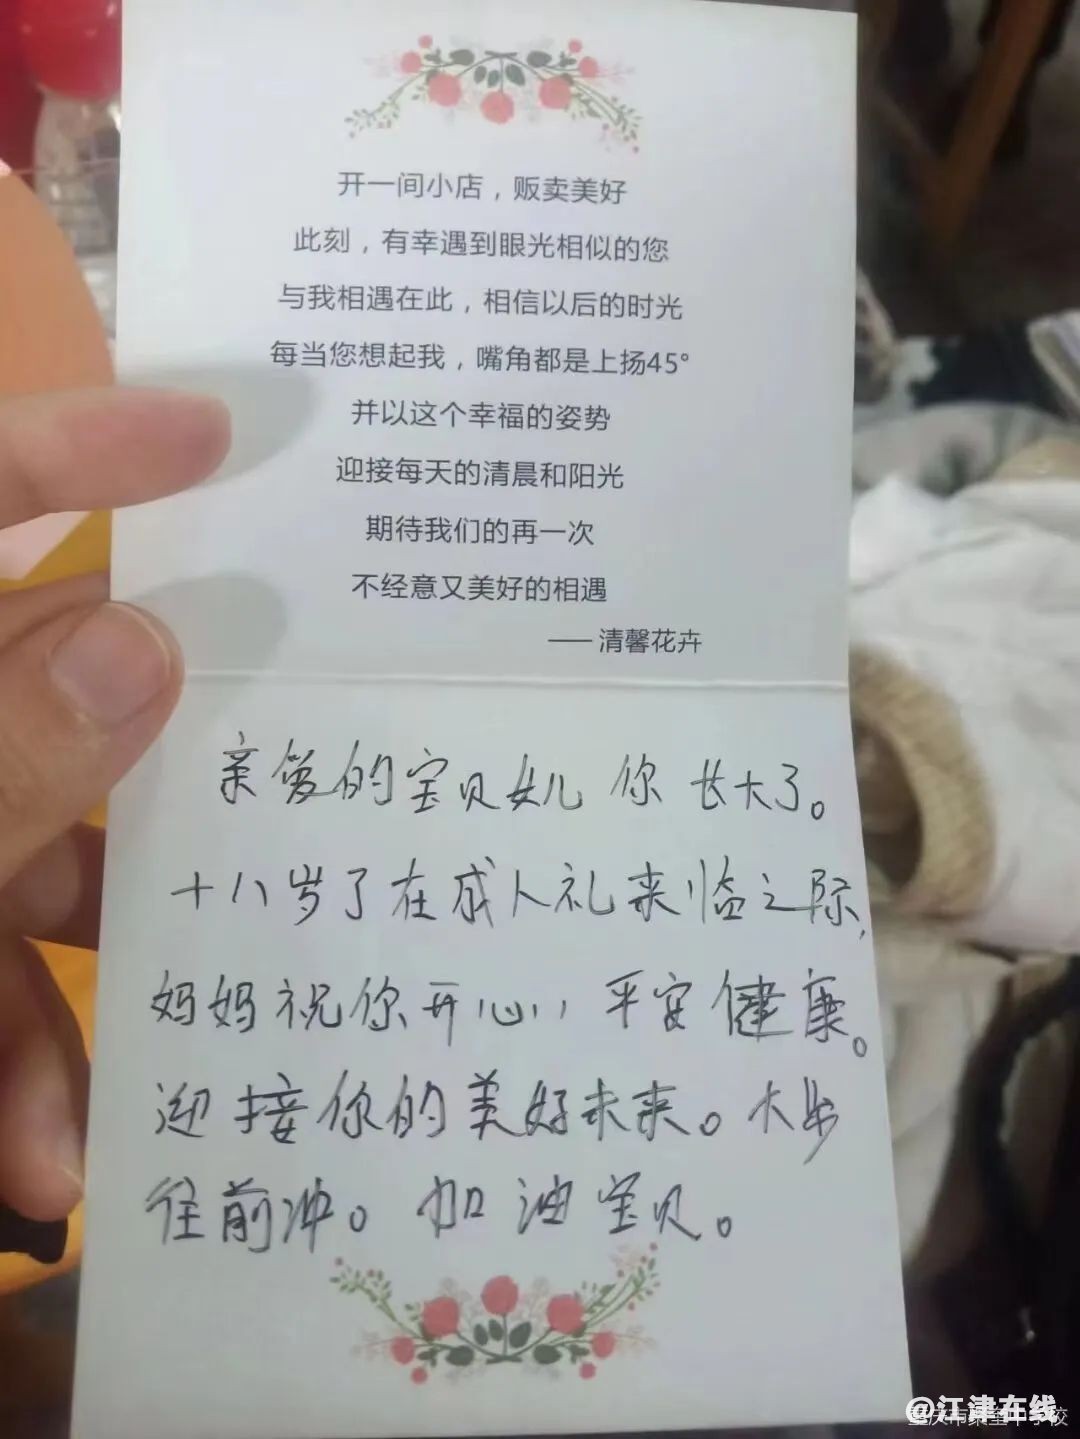 开一间小店，贩卖美好
此刻，有幸遇到眼光相似的您
与我相遇在此，相信以后的时光
每当您想起我，嘴角都是上扬45°
并以这个幸福的姿势
迎接每天的清晨和阳光
期待我们的再一次
不经意又美好的相遇
——清馨花卉
亲爱的宝贝女儿 你长大了。
十八岁了在成人礼来临之际，
妈妈祝你开心、平安健康。
迎接你的美好未来。大步
往前冲。加油宝贝。
@江津在线